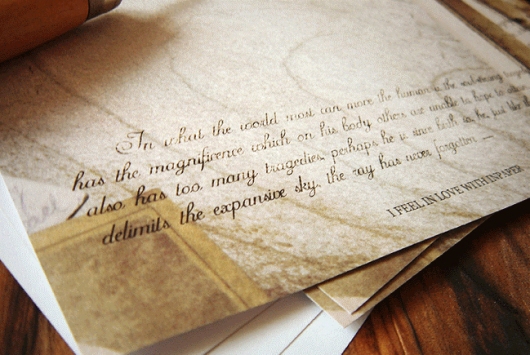 In what the world most can move the human is the
has the magnificence which on his body others are unable to hope to
also has too many tragedies, perhaps he is since birth so, he just like
delimits the expansive sky, the ray has never forgotten —
I FEEL IN LOVE WITH